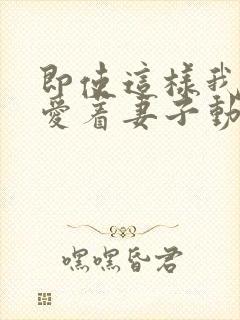 即使這樣我
愛着妻子動
嘿嘿昏君